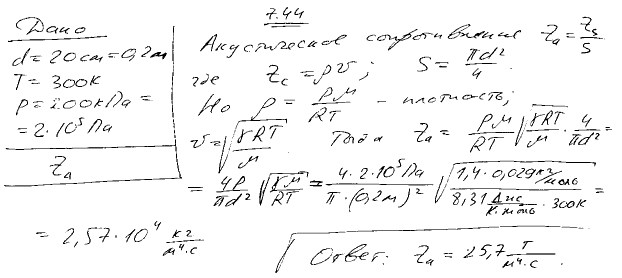 7.44
Дано
d = 20 см = 0,2 м
T = 300 К
P = 200 кПа =
= 2·10⁵ Па
Zₐ
Акустическое сопротивление Zₐ = Zₛ/S
где Z_c = ρυ; S = πd²/4.
Но ρ = Pμ/RT – плотность;
υ = √(γRT/μ). Тогда Zₐ = Pμ/RT √(γRT/μ) · 4/πd² =
= 4P/πd² √(γμ/RT) = 4·2·10⁵ Па/π·(0,2 м)² √(1,4·0,029 кг/моль / 8,31 Дж/К·моль · 300 К) =
= 2,57·10⁴ кг/м⁴·с
Ответ: Zₐ = 25,7 т/м⁴·с.